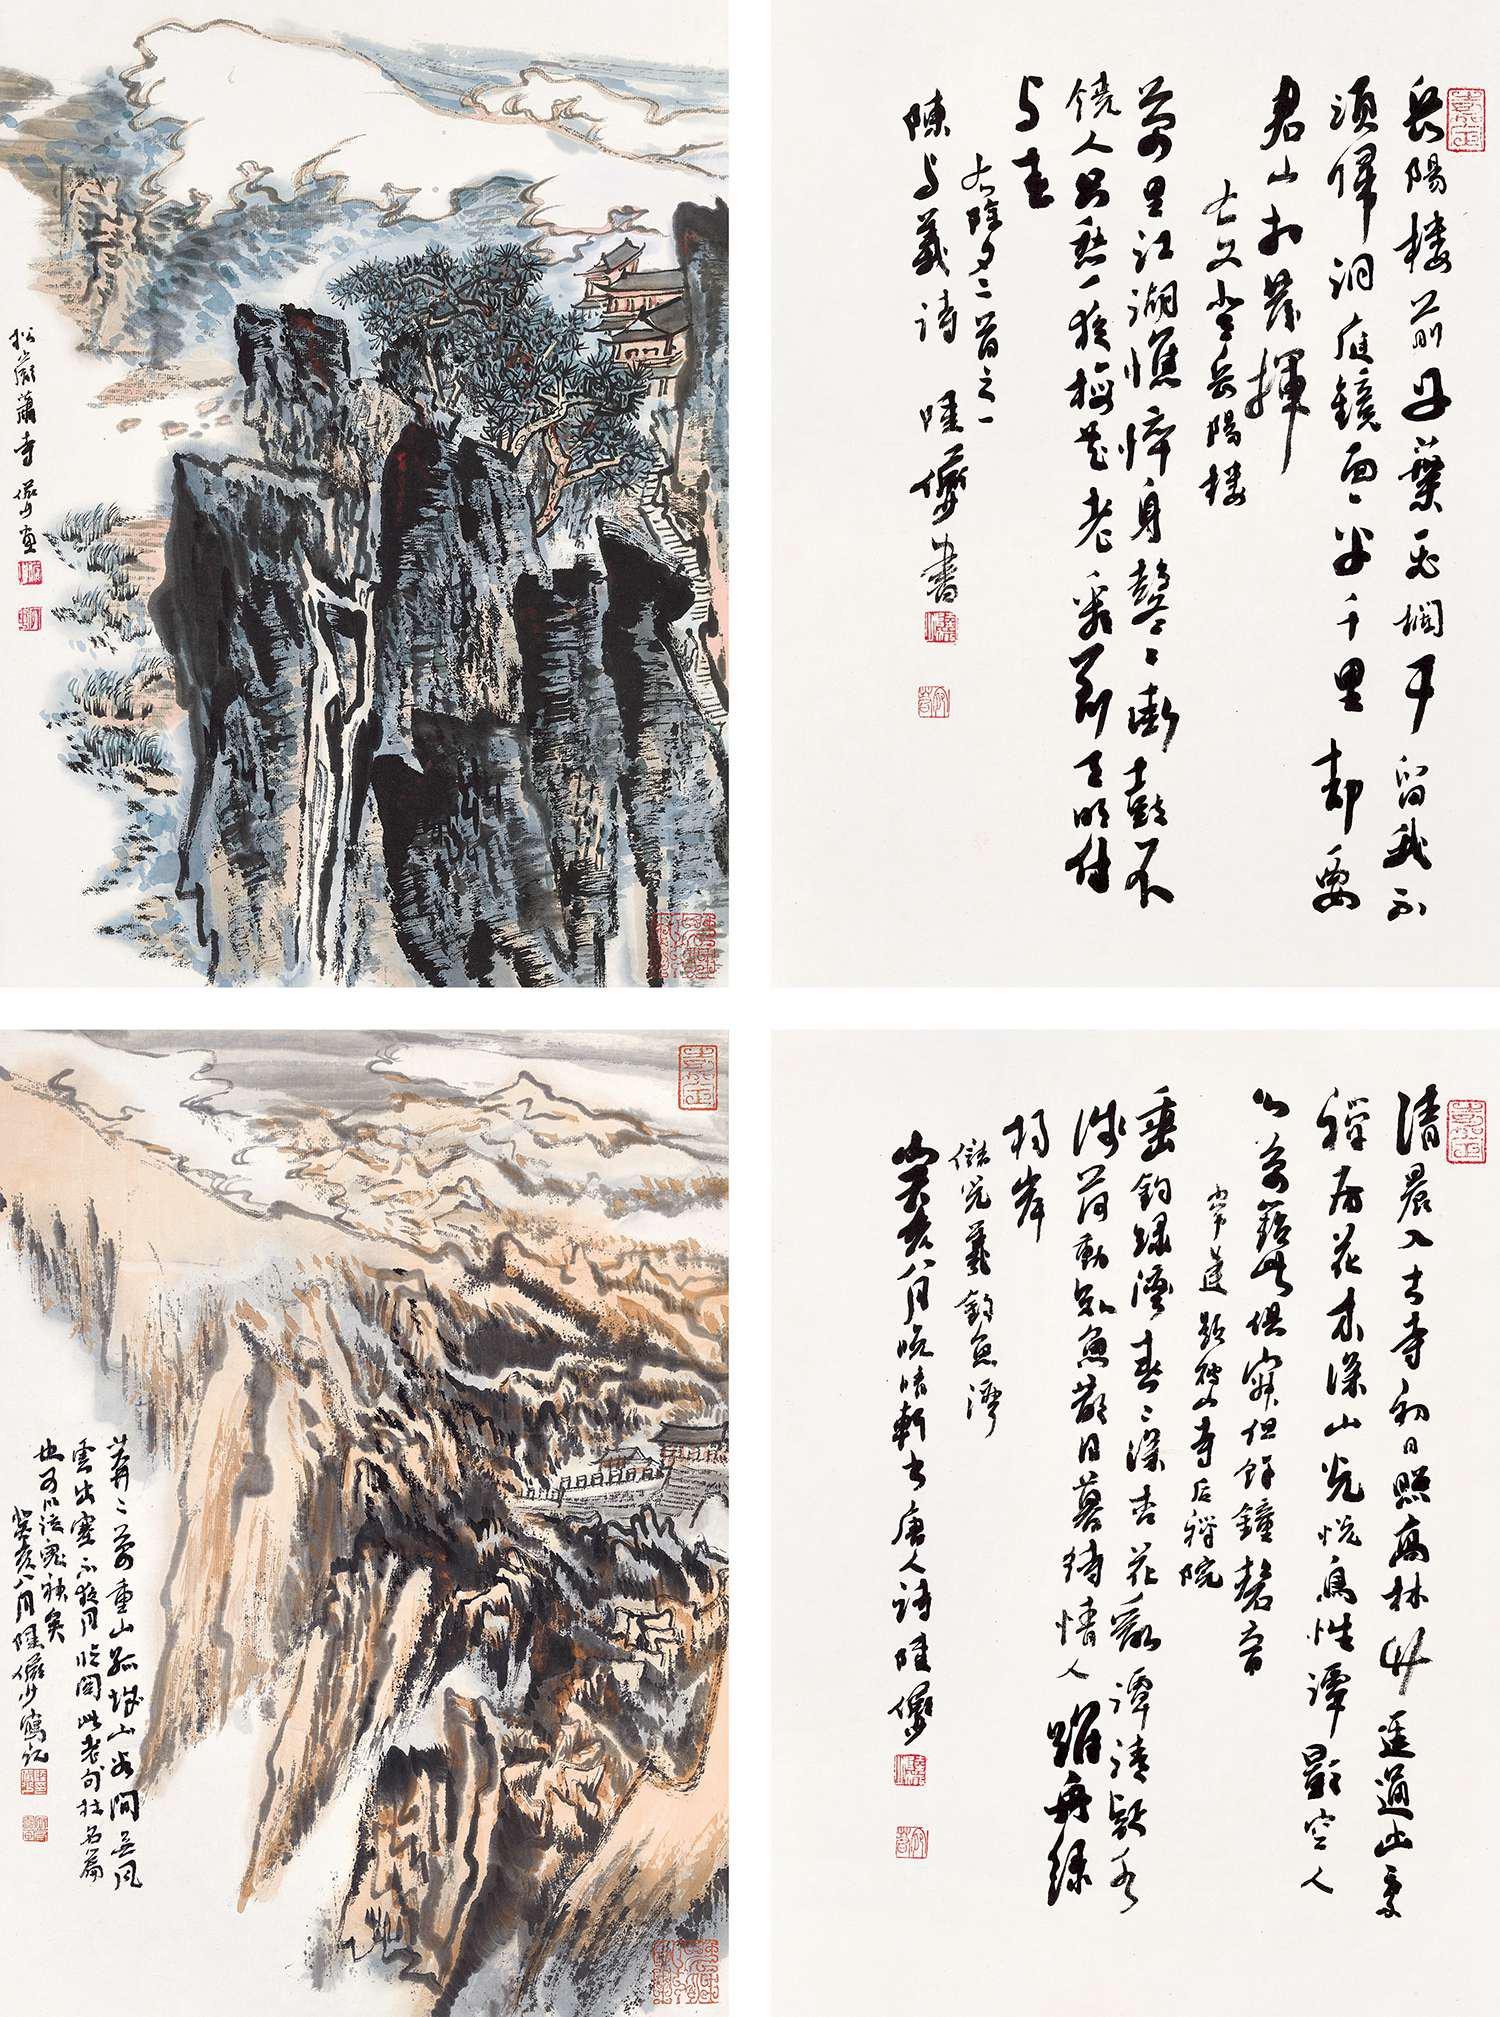 松巖蕭寺 儼少畫
岳陽樓前丹葉飛欄干留我不
須歸洞庭鏡面平千里却要
君山相發揮
右又登岳陽樓
萬里江湖憔悴身鼕〻街鼓不
饒人只愁一夜梅花老看到天明付
与春
右除夕二首之一
陳与義詩 陸儼少書
莽〻萬重山孤城山谷間無風
雲出塞不夜月臨關此老杜名篇
也可以
癸亥八月陸儼少寫記
清晨入古寺初日照高林竹逕通幽處
禪房花木深山光悅鳥性潭影空人
心萬籟此俱寂但餘鐘磬音
常建題破山寺后禪院
垂釣綠灣春〻深杏花亂潭清疑水
淺荷動知魚散日暮待情人維舟綠
楊岸
儲光羲釣魚灣
癸亥八月晚晴軒書唐人詩陸儼少